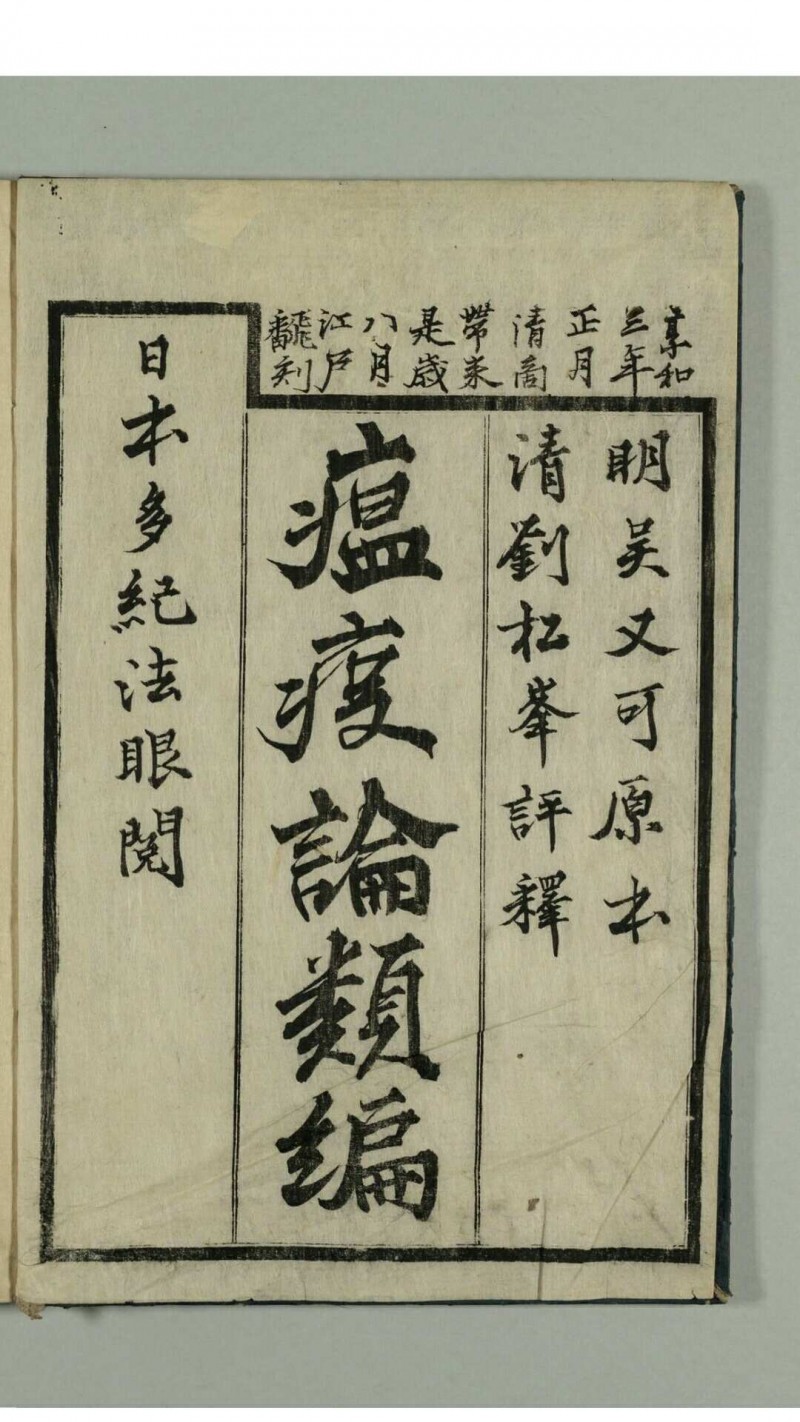 享和
三年
正月
清商
帶来
是歳
八月
江戸
飜刻
明吴又可原本
清劉松峯評釋
瘟疫論類編
日本多紀法眼閲